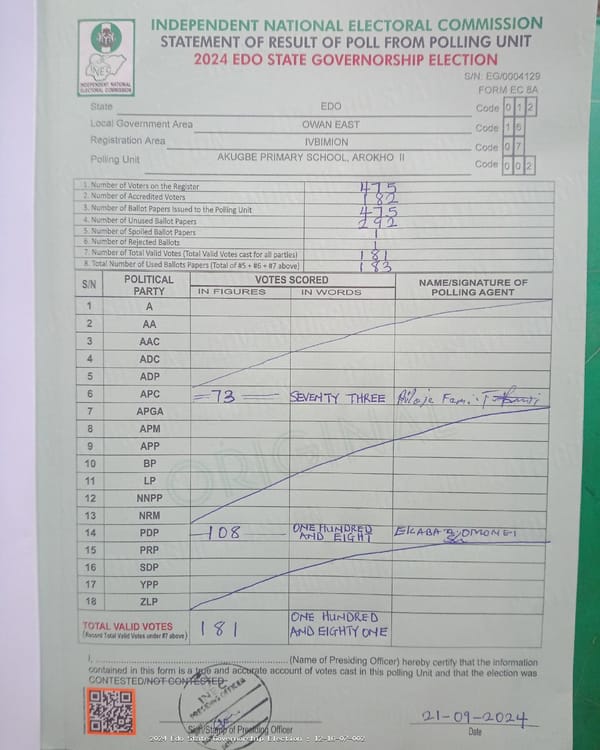 INDEPENDENT NATIONAL ELECTORAL COMMISSION
STATEMENT OF RESULT OF POLL FROM POLLING UNIT
2024 EDO STATE GOVERNORSHIP ELECTION
INEC
INDEPENDENT NATIONAL
ELECTORAL COMMISSION
S/N: EG/0004129
FORM EC 8A
State EDO Code 0 1 2
Local Government Area OWAN EAST Code 1 6
Registration Area IVBIMION Code 0 7
Polling Unit AKUGBE PRIMARY SCHOOL, AROKHO II Code 0 0 2
1. Number of Voters on the Register 475
2. Number of Accredited Voters 182
3. Number of Ballot Papers Issued to the Polling Unit 475
4. Number of Unused Ballot Papers 292
5. Number of Spoiled Ballot Papers 1
6. Number of Rejected Ballots 1
7. Number of Total Valid Votes (Total Valid Votes cast for all parties) 181
8. Total Number of Used Ballots Papers (Total of #5 + #6 + #7 above) 183
S/N POLITICAL PARTY VOTES SCORED NAME/SIGNATURE OF POLLING AGENT
IN FIGURES IN WORDS
1 A
2 AA
3 AAC
4 ADC
5 ADP
6 APC =73= SEVENTY THREE
7 APGA
8 APM
9 APP
10 BP
11 LP
12 NNPP
13 NRM
14 PDP 108 ONE HUNDRED AND EIGHT
15 PRP
16 SDP
17 YPP
18 ZLP
ORIGINAL
TOTAL VALID VOTES 181 ONE HUNDRED
(Record Total Valid Votes under #7 above) AND EIGHTY ONE
I, (Name of Presiding Officer) hereby certify that the information
contained in this form is a true and accurate account of votes cast in this polling Unit and that the election was
CONTESTED/NOT CONTESTED.
INEC
PRESIDING OFFICER
Sign/Stamp of Presiding Officer
21-09-2024
Date
2024 Edo State Governorship Election : 12-16-07-002